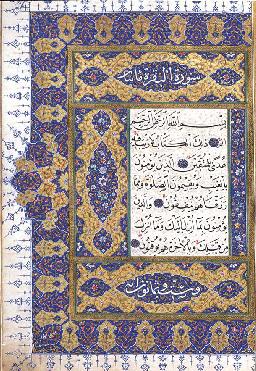 سورة البقرة مائتان
بسم الله الرحمن الرحيم
الم ذلك الكتاب لا ريب فيه
هدى للمتقين الذين يؤمنون
بالغيب ويقيمون الصلوة ومما
رزقناهم ينفقون والذين
يؤمنون بما أنزل إليك وما أنزل
من قبلك وبالآخرة هم يوقنون
وست وثمانون آية